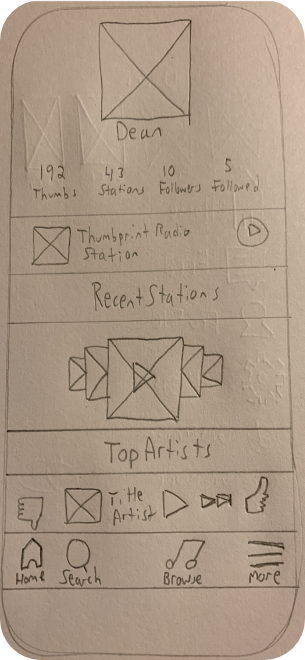 Dean
192 43 10 5
Thumbs Stations Followers Followed
Thumbprint Radio
Station
Recent Stations
Top Artists
Title
Artist
Home Search Browse More